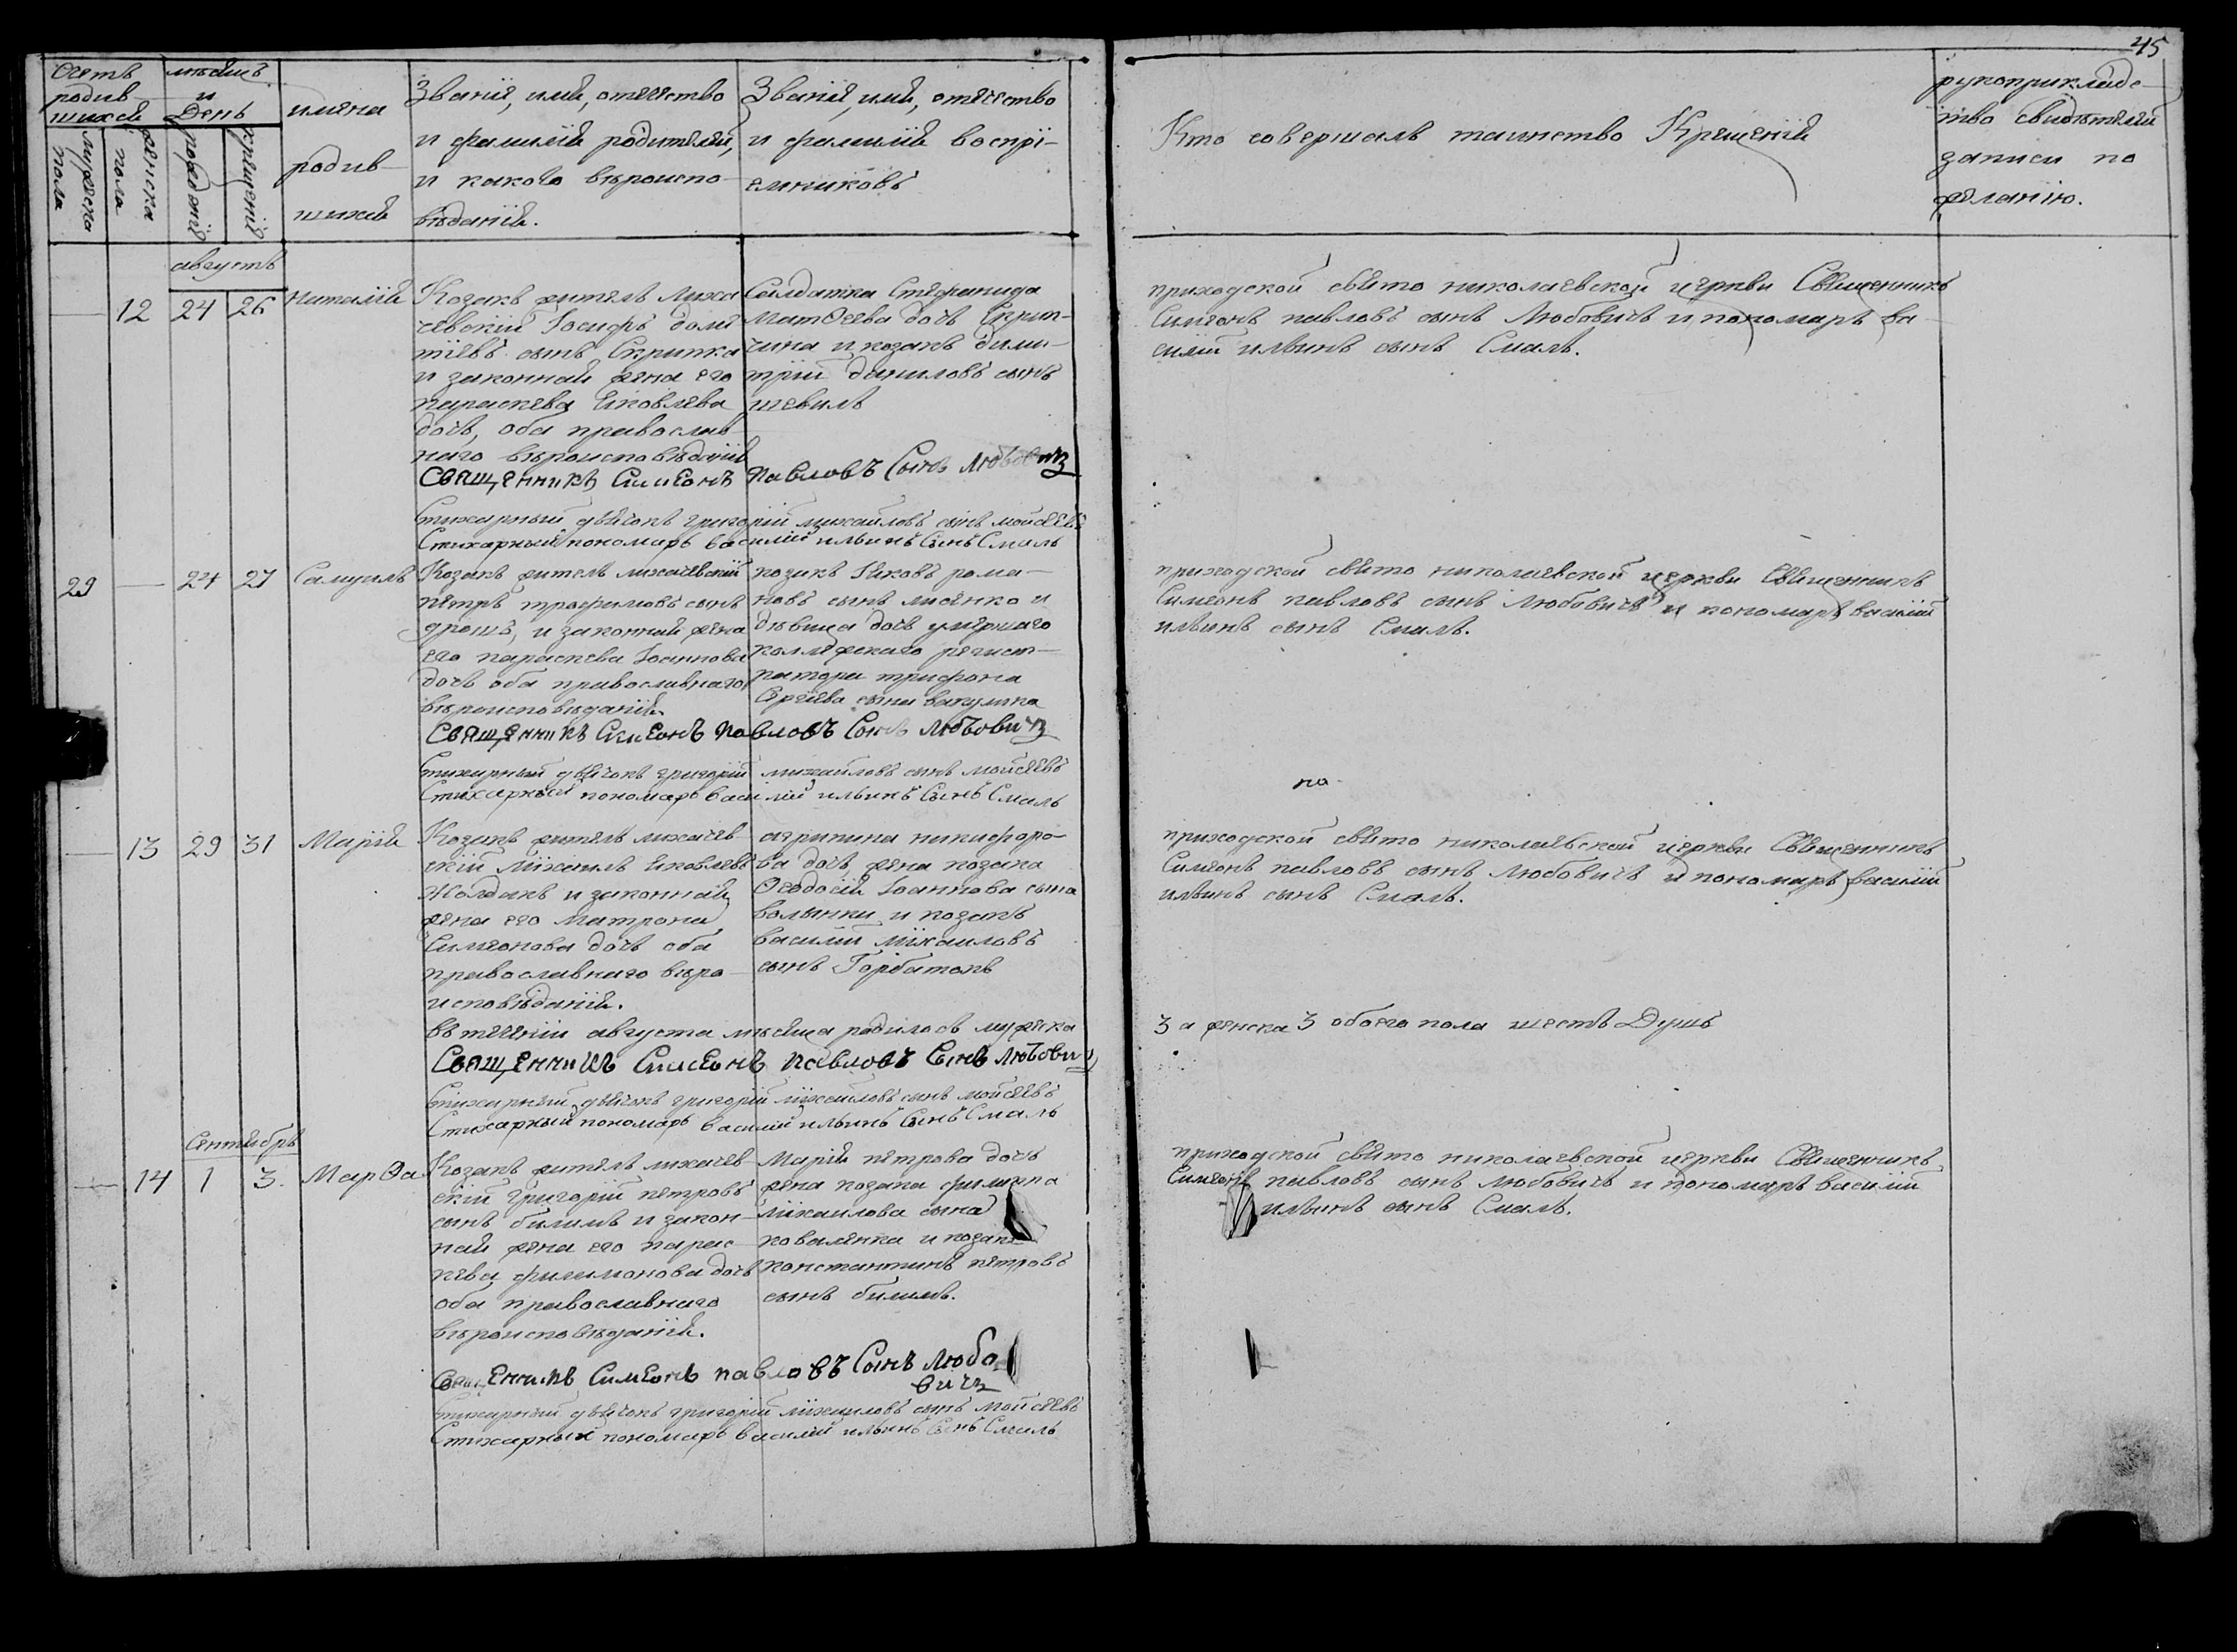 45
Счетъ родив-шихся
мѣсяцъ и День
имена родив-шихся
Званіе, имя, отечество и фамилія родителей, и какого вѣроиспо-вѣданія.
Званіе, имя, отечество и фамилія воспрі-емниковъ
Кто совершалъ таинство Крещенія
рукоприкладс-тво свидѣтелей записи по желанію.
мужеска пола
женска пола
рожденія
крещенія
августъ
12 24 26 Наталія
Козакъ житель лиха
чевскій Іосифъ
сынъ Скрипка
и законная жена его
параскева Яковлева
дочь, оба православ-
наго вѣроисповѣданія
Салдатка Стефанида
матѳеева дочь Скрип-
чина и козакъ дими-
трій даниловъ сынъ
шевиль
приходской свято николаевской церкви Священникъ
Симеонъ павловъ сынъ Любовичъ и пономарь ва-
силій ильинъ сынъ Смаль.
Священникъ Симеонъ павловъ Сынъ Любовичъ
Стихарный дьячокъ григорій михайловъ сынъ мойсеевъ
Стихарный пономарь василій ильинъ Сынъ Смаль
29 24 27 Самуилъ
Козакъ житель лихачевскій
петръ трофимовъ сынъ
и законная жена
его параскева Іоаннова
дочь оба православнаго
вѣроисповѣданія.
козакъ Яковъ рома-
новъ сынъ лисенко и
дѣвица дочь умершаго
коллежскаго регист-
ратора трифона
Сергѣева сына вакулина
приходской свято николаевской церкви Священникъ
Симеонъ павловъ сынъ Любовичъ и пономарь василій
ильинъ сынъ Смаль.
Священникъ Симеонъ павловъ Сынъ Любовичъ
Стихарный дьячокъ григорій михайловъ сынъ мойсеевъ
Стихарный пономарь василій ильинъ Сынъ Смаль
по
13 29 31 Марія
Козакъ житель лихачев-
скій Михаилъ Яковлевъ
Жолдакъ и законная
жена его Матрона
Симеонова дочь оба
православнаго вѣро-
исповѣданія.
агрипина никифоро-
ва дочь, жена козака
Ѳеодосія Іоаннова сына
волынки и козакъ
василій михаиловъ
сынъ Горбатокъ
приходской свято николаевской церкви Священникъ
Симеонъ павловъ сынъ Любовичъ и пономарь василій
ильинъ сынъ Смаль.
въ теченіи августа мѣсяца родилось мужеска 3 а женска 3 обоего пола шесть Душъ
Священникъ Симеонъ павловъ Сынъ Любович
Стихарный дьячокъ григорій михаиловъ сынъ мойсеевъ
Стихарный пономарь василій ильинъ Сынъ Смаль
Сентябрь
14 1 3. Марѳа
Козакъ житель лихачев-
скій григорій петровъ
сынъ билимъ и закон-
ная жена его парас-
кева филимонова дочь
оба православнаго
вѣроисповѣданія.
Марія петрова дочь
жена козака филипа
михаилова сына
коваленка и козакъ
константинъ петровъ
сынъ билимъ.
приходской свято николаевской церкви Священникъ
Симеонъ павловъ сынъ любовичъ и пономарь василій
ильинъ сынъ Смаль.
Священникъ Симеонъ павловъ Сынъ Любо
вичъ
Стихарный дьячокъ григорій михаиловъ сынъ мойсеевъ
Стихарный пономарь василій ильинъ Сынъ Смаль